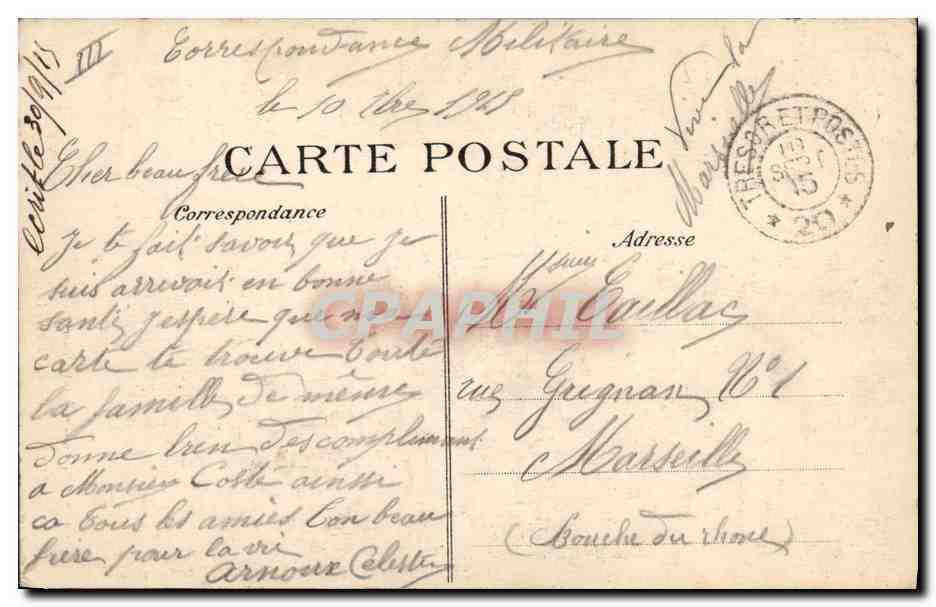 III
Correspondance Militaire
le 10 7bre 1915
Vive la
Marseille
Ecrit le 30/9/15
TRESOR ET POSTES
10
SEPT
15
* 20 *
CARTE POSTALE
Cher beau frere
Correspondance
Adresse
Je te fait savoir que je
suis arrivoir en bonne
santé, J'espère que ma
carte te trouve toute
la famille de même
donne bien des compliment
a Monsieur Coste ainssi
ca tous les amies ton beau
frere pour la vie
Arnoux Celestin
Taillac
rue Grignan N° 1
Marseille
(Bouche du rhone)
CPAPHIL